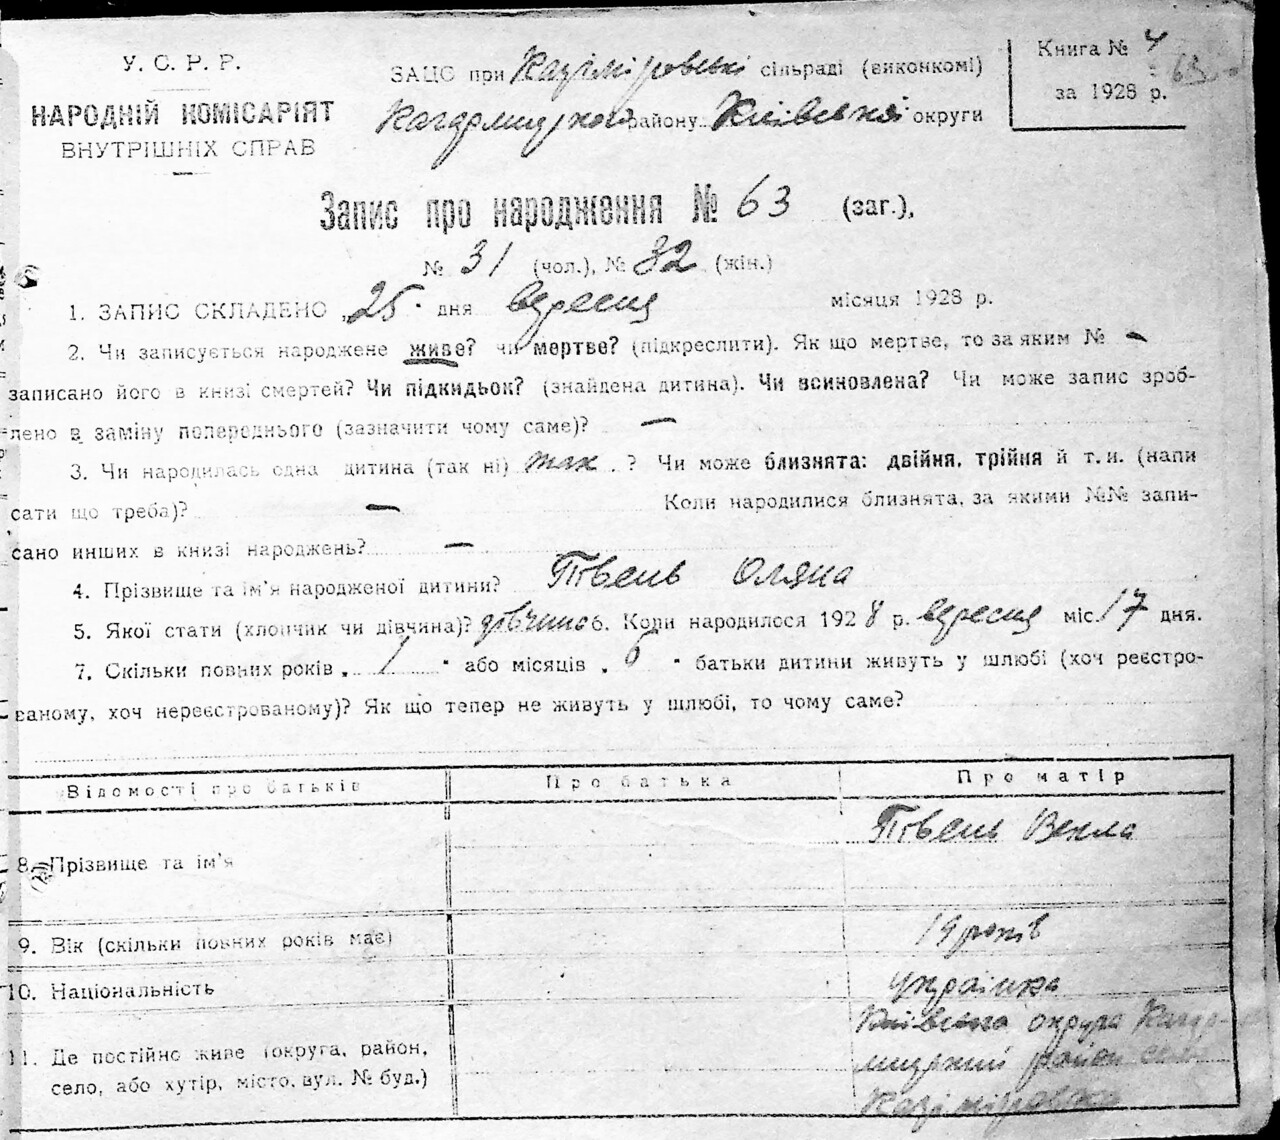 У. С. Р. Р.
НАРОДНІЙ КОМІСАРІЯТ
ВНУТРІШНІХ СПРАВ
ЗАЦС при Казіміровські сільраді (виконкомі)
Кагарлицького району Київської округи
Книга № 4
за 1928 р.
63
Запис про народження № 63 (заг.),
№ 31 (чол.), № 32 (жін.)
1. ЗАПИС СКЛАДЕНО 25 дня вересня місяця 1928 р.
2. Чи записується народжене живе? чи мертве? (підкреслити). Як що мертве, то за яким № —
записано його в книзі смертей? Чи підкидьок? (знайдена дитина). Чи всиновлена? Чи може запис зроб-
лено в заміну попереднього (зазначити чому саме)? —
3. Чи народилась одна дитина (так ні) так ? Чи може близнята: двійня, трійня й т. и. (напи
сати що треба)? — Коли народилися близнята, за якими №№ запи-
сано инших в книзі народжень? —
4. Прізвище та ім'я народженої дитини? Півень Оляна
5. Якої стати (хлопчик чи дівчина)? дівчина 6. Коли народилося 1928 р. вересня міс. 17 дня.
7. Скільки повних років 1 або місяців 6 батьки дитини живуть у шлюбі (хоч реєстро-
ваному, хоч нереєстрованому)? Як що тепер не живуть у шлюбі, то чому саме?
Відомості про батьків Про батька Про матір
8. Прізвище та ім'я Півень Векла
9. Вік (скільки повних років має) 19 років
10. Національність українка
11. Де постійно живе (округа, район,
село, або хутір, місто, вул. № буд.)
Київська округа Кагар-
лицький район село
Казіміровка